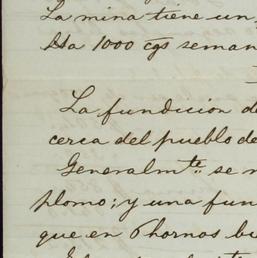 La mina tiene un
Sta 1000 cgs seman
La fundicion d
cerca del pueblo de
Generalmte se
plomo; y una fun
que en 6 hornos bu